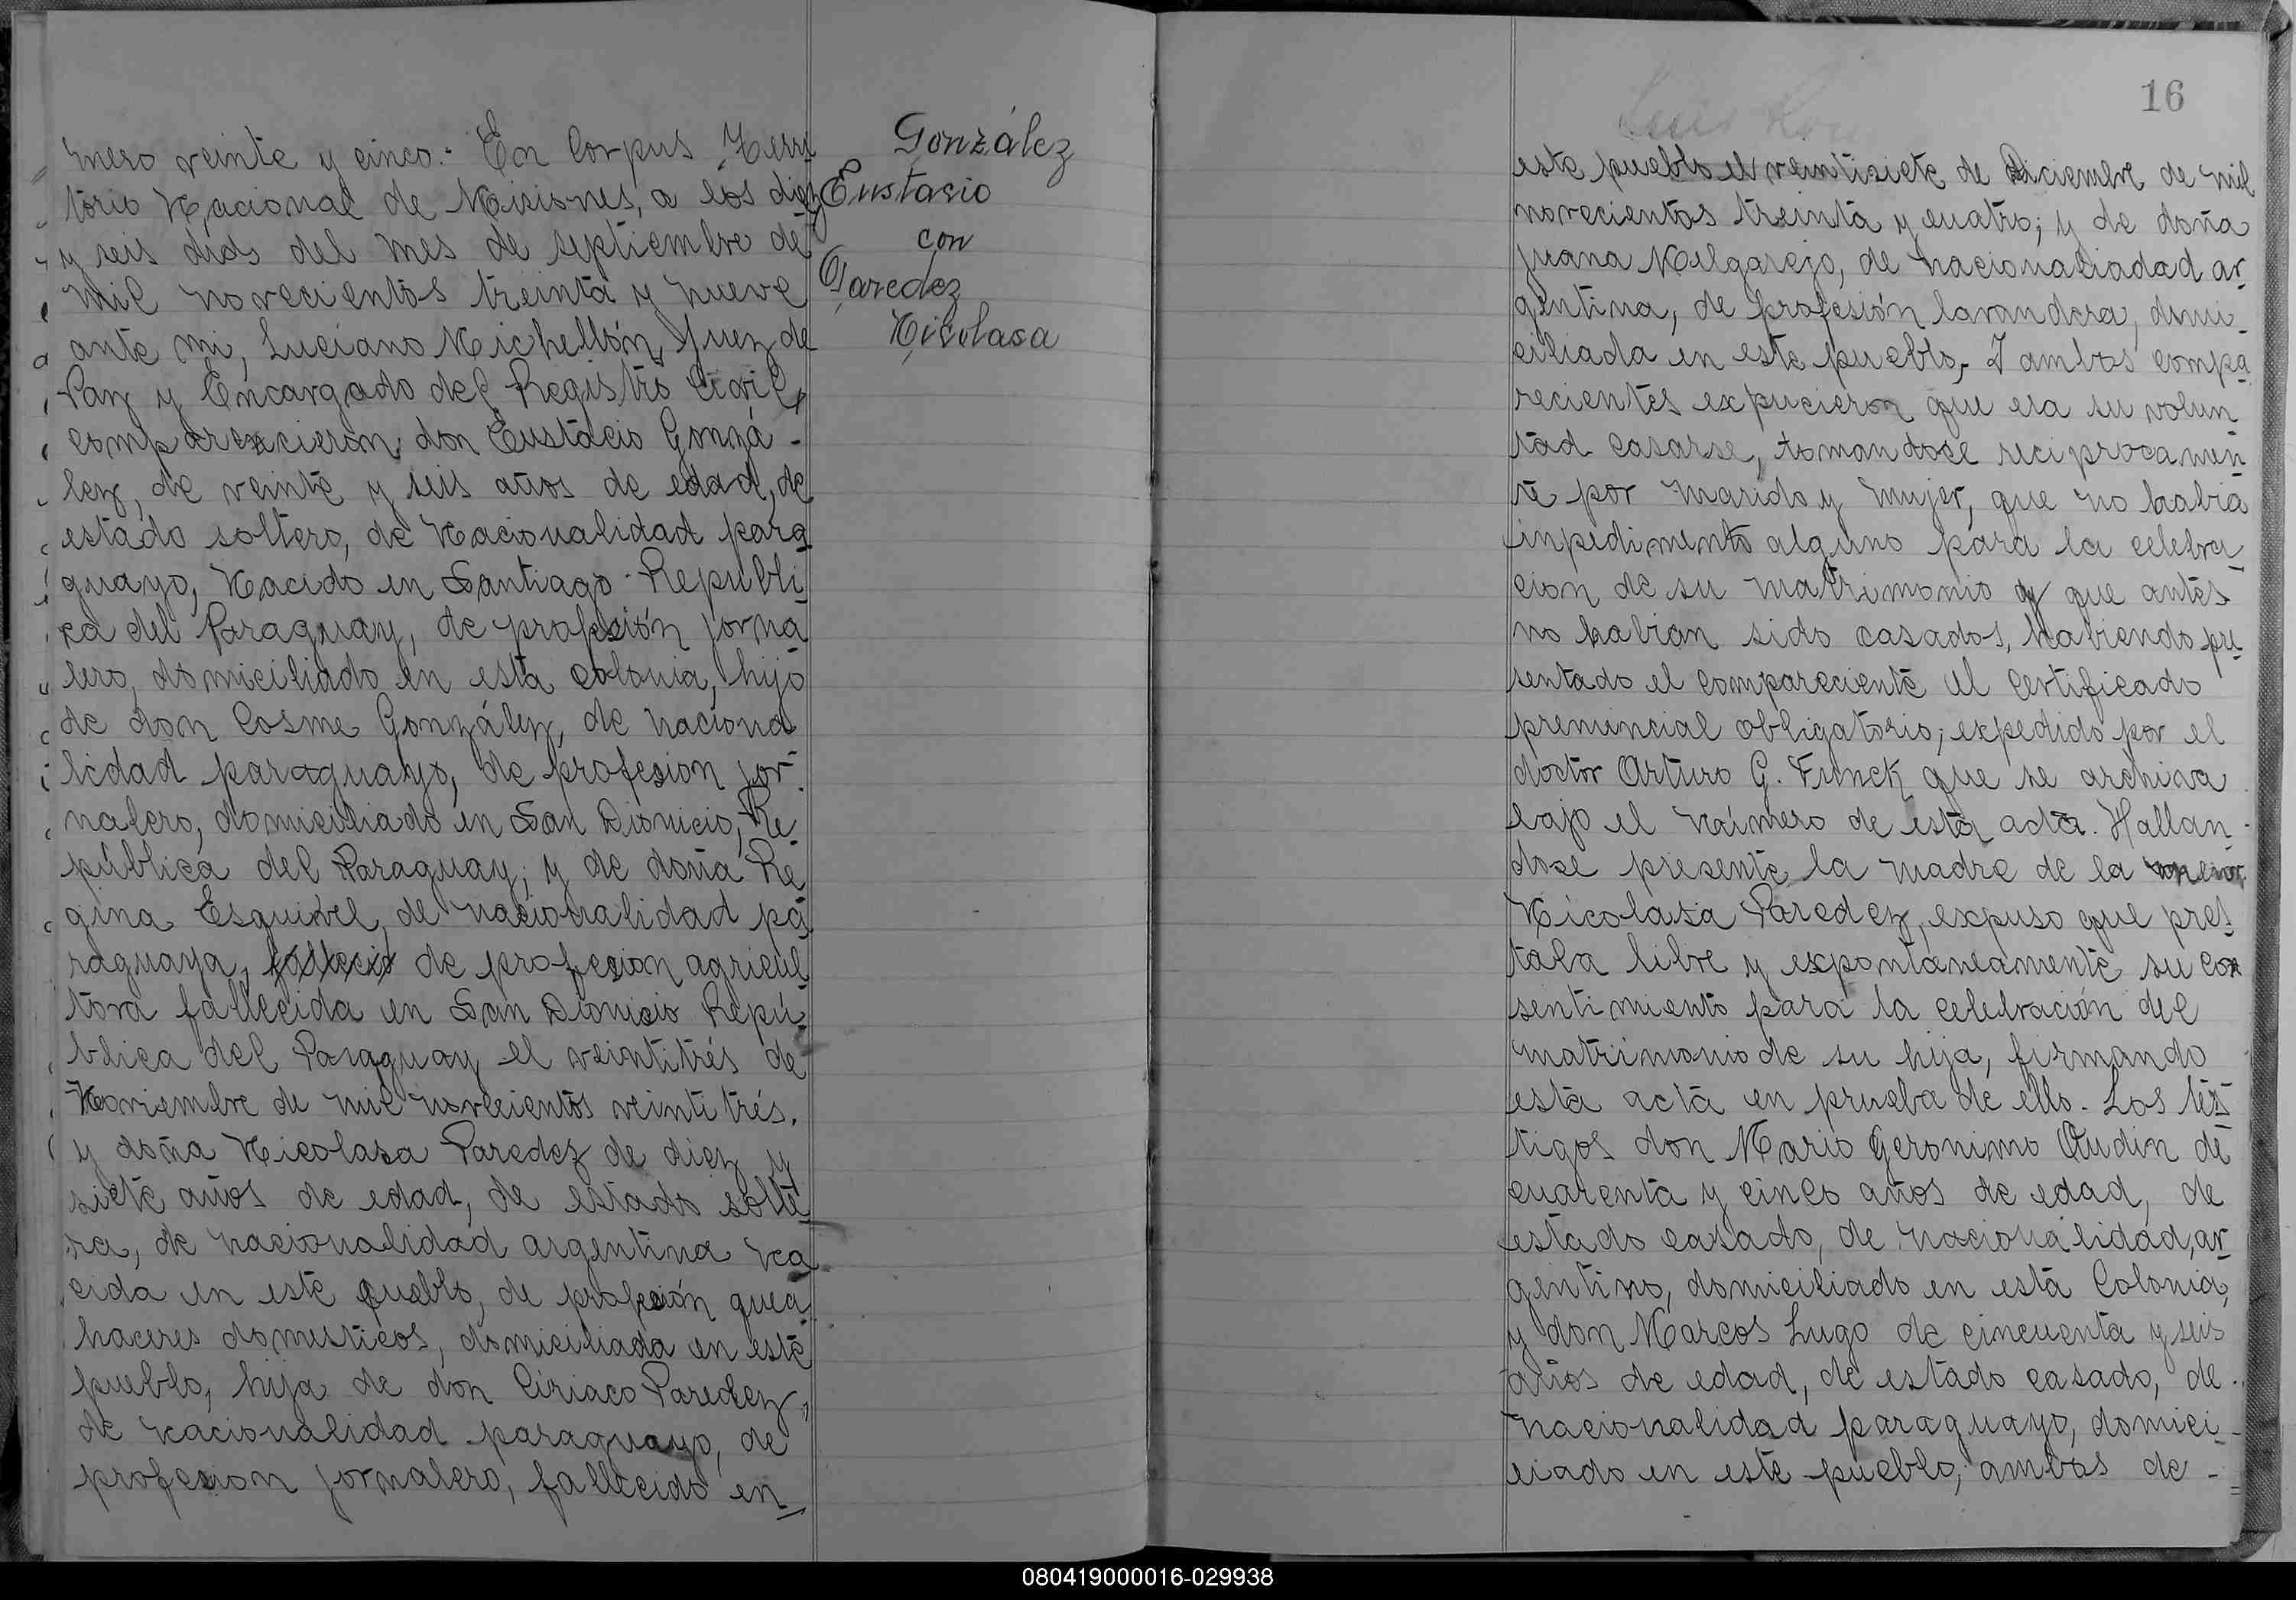 mero veinte y cinco.- En Corpus, Terri
torio Nacional de Misiones, a los diez
y seis dias del mes de septiembre de
mil novecientos treinta y nueve
ante mi, Luciano Michellón, Juez de
Paz y Encargado del Registro Civil,
comparecieron don Eustacio Gonzá-
lez, de veinte y seis años de edad, de
estado soltero, de Nacionalidad para
guayo, Nacido en Santiago - Republi
ca del Paraguay, de profesión jorna
lero, domiciliado en esta colonia, hijo
de don Cosme González, de naciona
lidad paraguayo, de profesion jor
nalero, domiciliado en San Dionicio, Re
pública del Paraguay; y de doña Re
gina Esquivel, de nacionalidad pa
raguaya, de profesion agricul
tora fallecida en San Dionicio Repú
blica del Paraguay el veintitrés de
Noviembre de mil novecientos veintitrés.
y doña Nicolasa Paredez de diez y
siete años de edad, de estado solte
ra, de nacionalidad argentina na
cida en este pueblo, de profesión quea
haceres domesticos, domiciliada en este
pueblo, hija de don Ciriaco Paredez,
de nacionalidad paraguayo, de
profesion jornalero, fallecido en
González
Eustasio
con
Paredez
Nicolasa
16
Luis
este pueblo el veintisiete de Diciembre de mil
novecientos treinta y cuatro; y de doña
Juana Melgarejo, de nacionaliadad ar
gentina, de profesión lavandera, domi-
ciliada en este pueblo,- I ambos compa
recientes expucieron que era su volun
tad casarse, tomandose reciprocamen
te por marido y mujer, que no habia
inpedimento alguno para la celebra
cion de su matrimonio y que antes
no habian sido casados, habiendo pre
sentado el compareciente el certificado
prenuncial obligatorio; expedido por el
doctor Arturo G. Frinck que se archiva
bajo el número de esta acta. Hallan-
dose presente la madre de la menor
Nicolasa Paredez, expuso que pres
taba libre y expontaneamente su con
sentimiento para la celebración del
matrimonio de su hija, firmando
esta acta en prueba de ello. Los tes
tigos don Mario Geronimo Audin de
cuarenta y cinco años de edad, de
estado casado, de nacionalidad, ar
gentino, domiciliado en esta Colonia,
y don Marcos Lugo de cincuenta y seis
años de edad, de estado casado, de
nacionalidad paraguayo, domici-
ciado en este pueblo, ambos de -
080419000016-029938